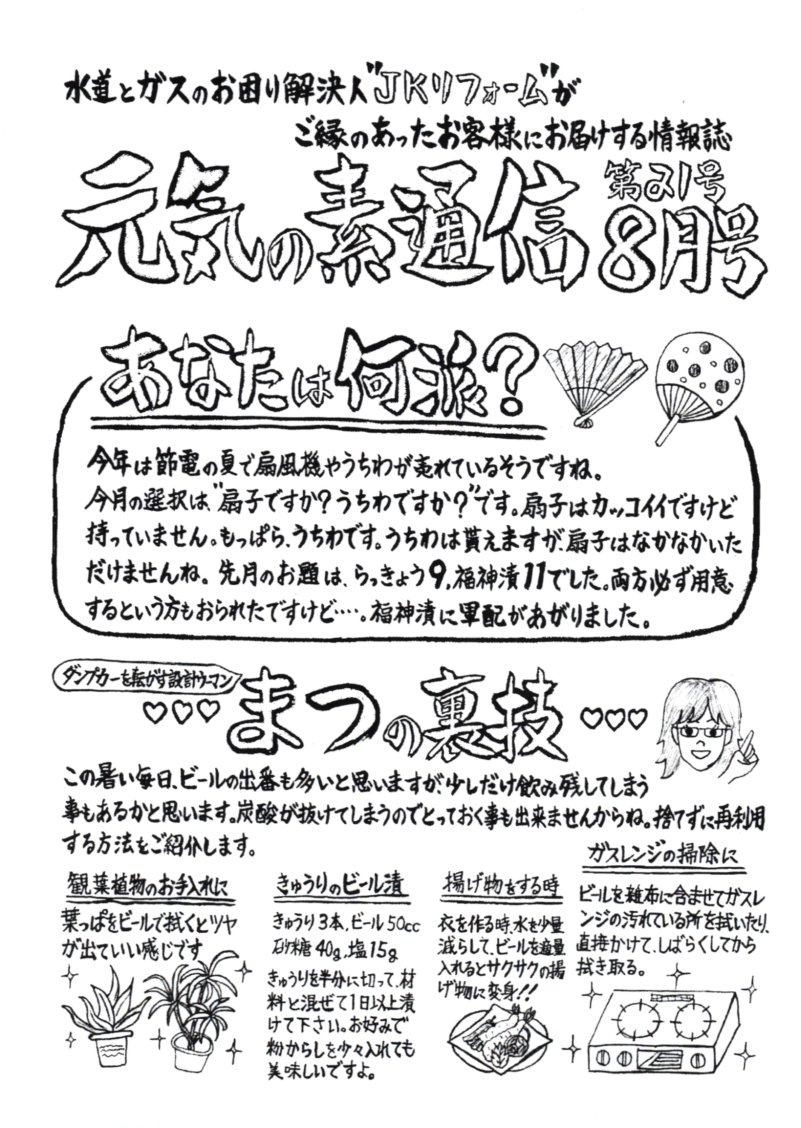 水道とガスのお困り解決人"JKリフォーム"が
ご縁のあったお客様にお届けする情報誌
元気の素通信
第21号
8月号
あなたは何派?
今年は節電の夏で扇風機やうちわが売れているそうですね。
今月の選択は"扇子ですか?うちわですか?"です。扇子はカッコイイですけど
持っていません。もっぱら、うちわです。うちわは貰えますが、扇子はなかなかいた
だけませんね。先月のお題は、らっきょう9、福神漬11でした。両方必ず用意
するという方もおられたですけど‥‥。福神漬に軍配があがりました。
ダンプカーを転がす設計ウーマン
♡♡♡まつの裏技♡♡♡
この暑い毎日、ビールの出番も多いと思いますが、少しだけ飲み残してしまう
事もあるかと思います。炭酸が抜けてしまうのでとっておく事も出来ませんからね。捨てずに再利用
する方法をご紹介します。
観葉植物のお手入れに
葉っぱをビールで拭くとツヤ
が出ていい感じです
きゅうりのビール漬
きゅうり3本、ビール50cc
砂糖40g、塩15g
きゅうりを半分に切って、材
料と混ぜて1日以上漬
けて下さい。お好みで
粉からしを少々入れても
美味しいですよ。
揚げ物をする時
衣を作る時、水を少量
減らして、ビールを適量
入れるとサクサクの揚
げ物に変身!!
ガスレンジの掃除に
ビールを雑布に含ませてガスレ
ンジの汚れている所を拭いたり、
直接かけて、しばらくしてから
拭き取る。